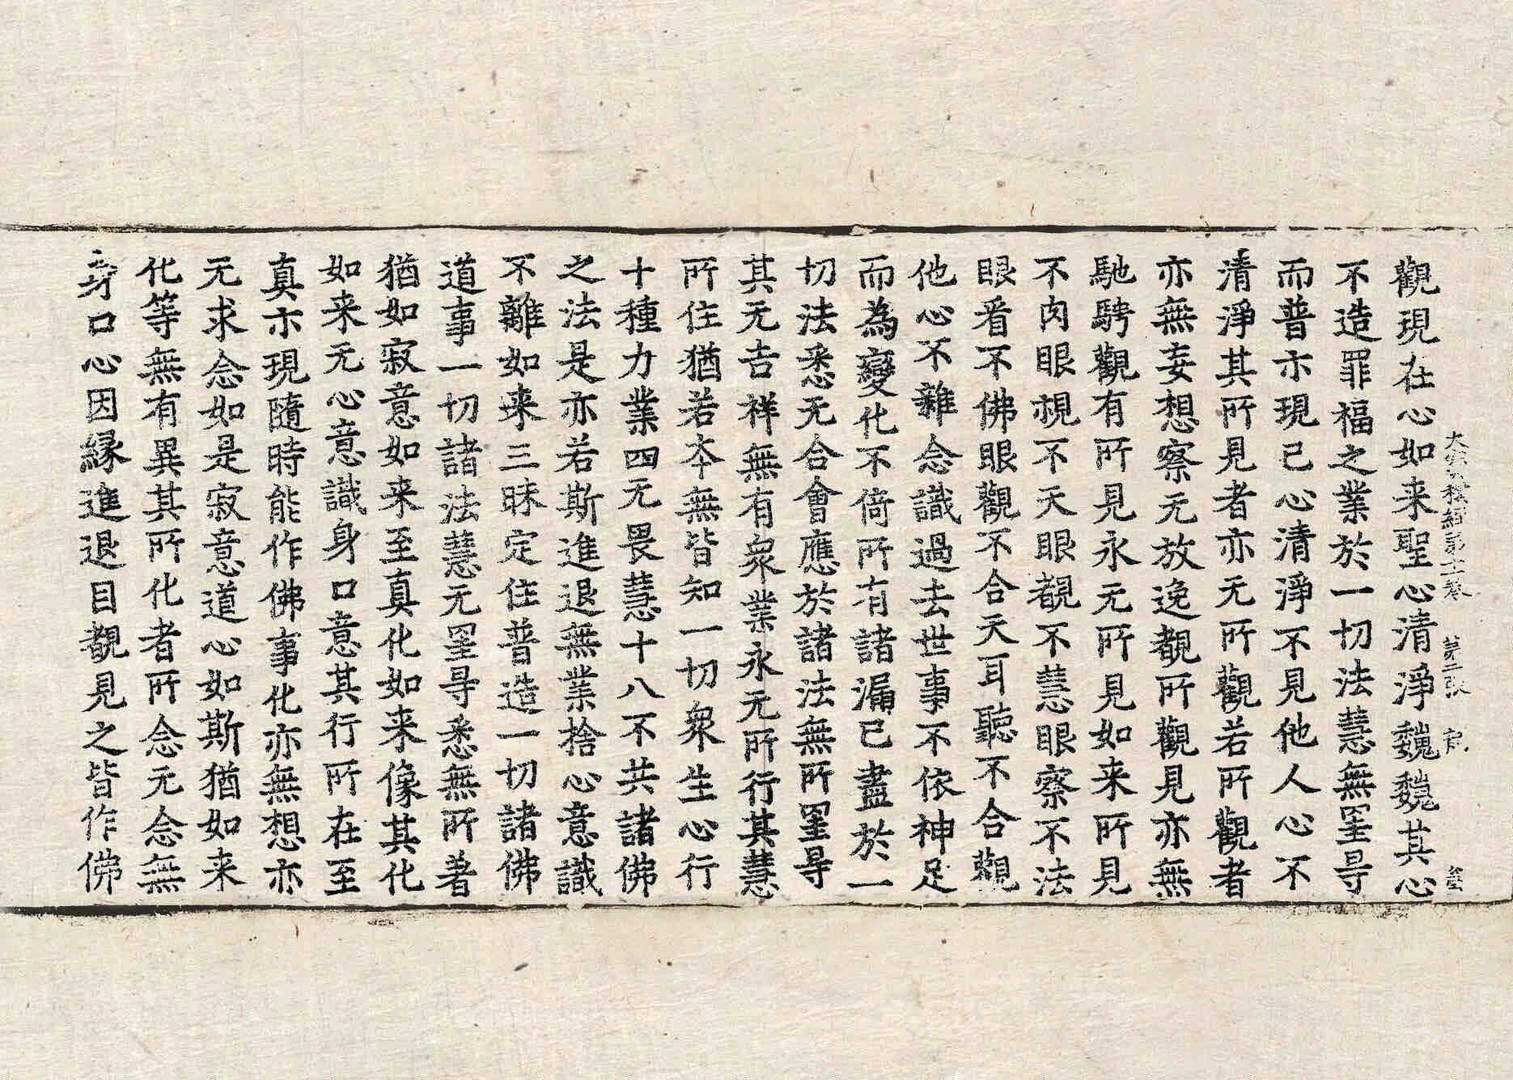 觀現在心如来聖心清淨巍巍其心
不造罪福之業於一切法慧無罣㝵
而普示現己心清淨不見他人心不
清淨其所見者亦无所觀若所觀者
亦無妄想察无放逸覩所觀見亦無
馳騁觀有所見永无所見如来所見
不肉眼視不天眼覩不慧眼察不法
眼看不佛眼觀不合天耳聽不合觀
他心不雜念識過去世事不依神足
而為變化不倚所有諸漏已盡於一
切法悉无合會應於諸法無所罣㝵
其无吉祥無有衆業永无所行其慧
所住猶若夲無皆知一切衆生心行
十種力業四无畏慧十八不共諸佛
之法是亦若斯進退無業捨心意識
不離如来三昧定住普造一切諸佛
道事一切諸法慧无罣㝵悉無所著
猶如寂意如来至真化如来像其化
如来无心意識身口意其行所在至
真示現隨時能作佛事化亦無想亦
无求念如是寂意道心如斯猶如来
化等無有異其所化者所念无念無
身口心因緣進退目覩見之皆作佛
大 積經第十卷 第二張